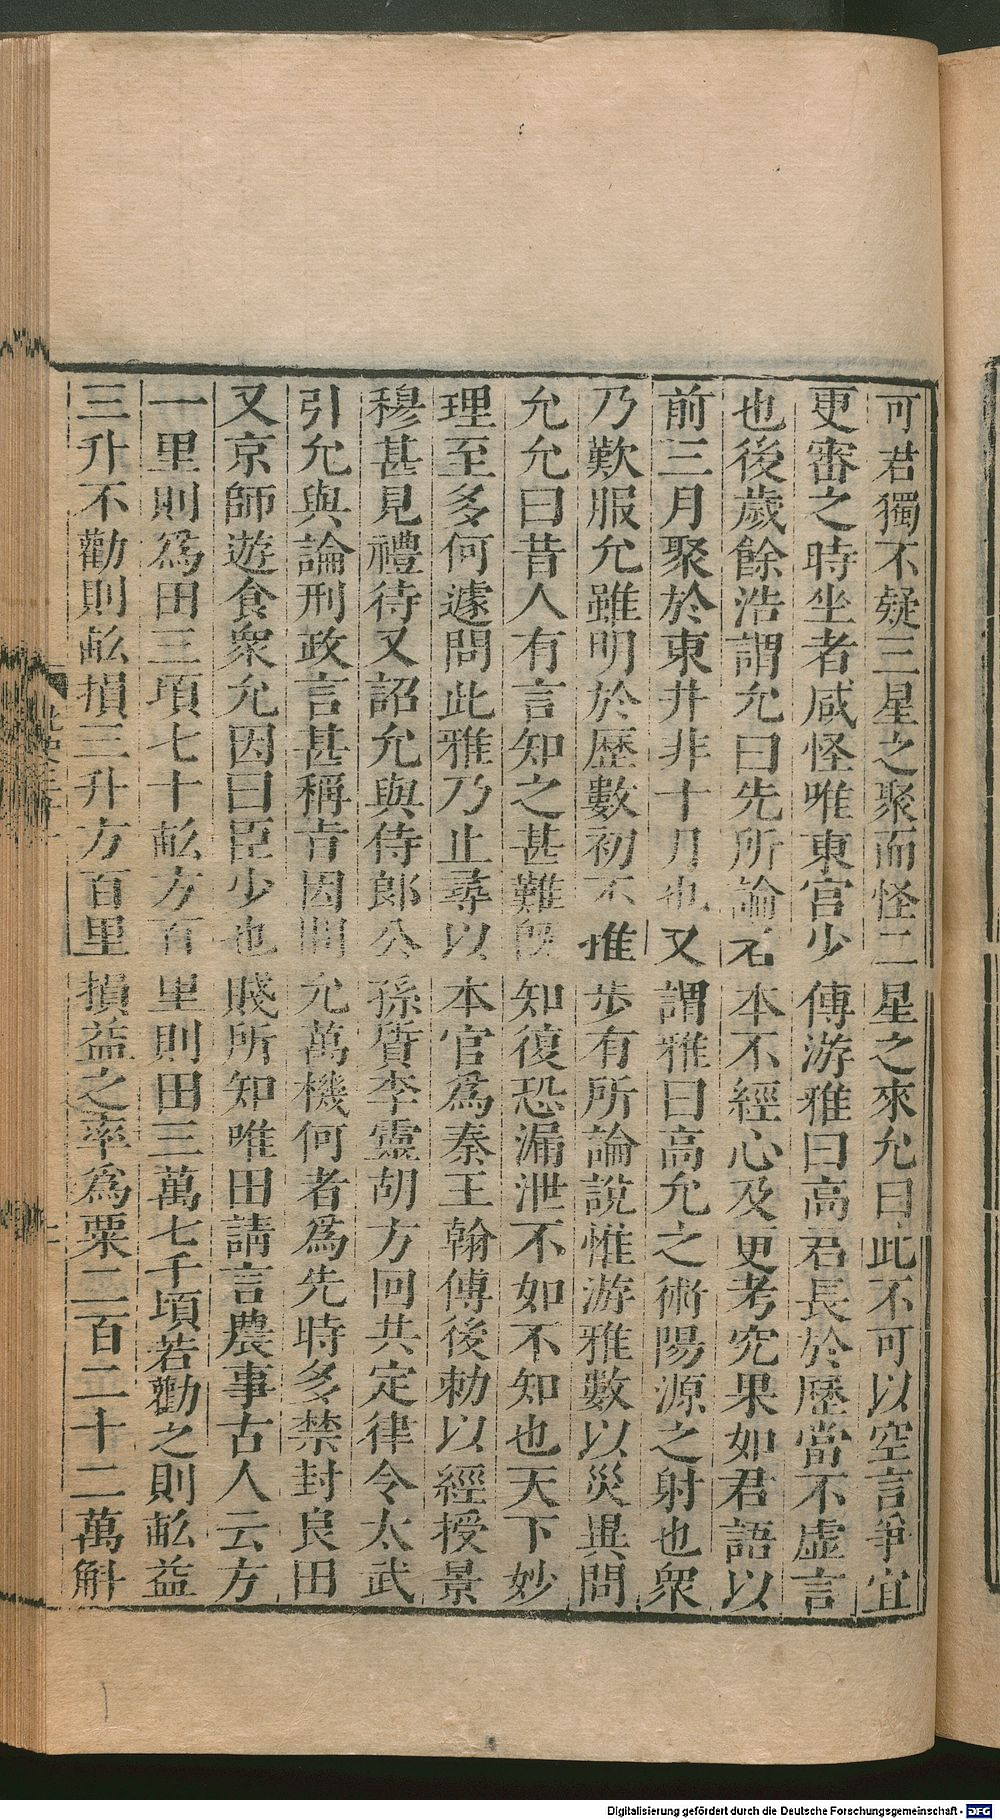 可君獨不疑三星之聚而怪二星之來允曰此不可以空言爭宜
更審之時坐者咸怪唯東宮少傅游雅曰高君長於歷當不虛言
也後歲餘浩謂允曰先所論者本不經心及更考究果如君語以
前三月聚於東井非十月也又謂雅曰高允之術陽源之射也衆
乃歎服允雖明於歷數初不推步有所論說惟游雅數以災異問
允允曰昔人有言知之甚難旣知復恐漏泄不如不知也天下妙
理至多何遽問此雅乃止尋以本官爲秦王翰傅後勅以經授景
穆甚見禮待又詔允與侍郎公孫質李靈胡方回共定律令太武
引允與論刑政言甚稱旨因問允萬機何者爲先時多禁封良田
又京師遊食衆允因曰臣少也賤所知唯田請言農事古人云方
一里則爲田三項七十畝方百里則田三萬七千項若勸之則畝益
三升不勸則畝損三升方百里損益之率爲粟二百二十二萬斛
Digitalisierung gefördert durch die Deutsche Forschungsgemeinschaft - DFG